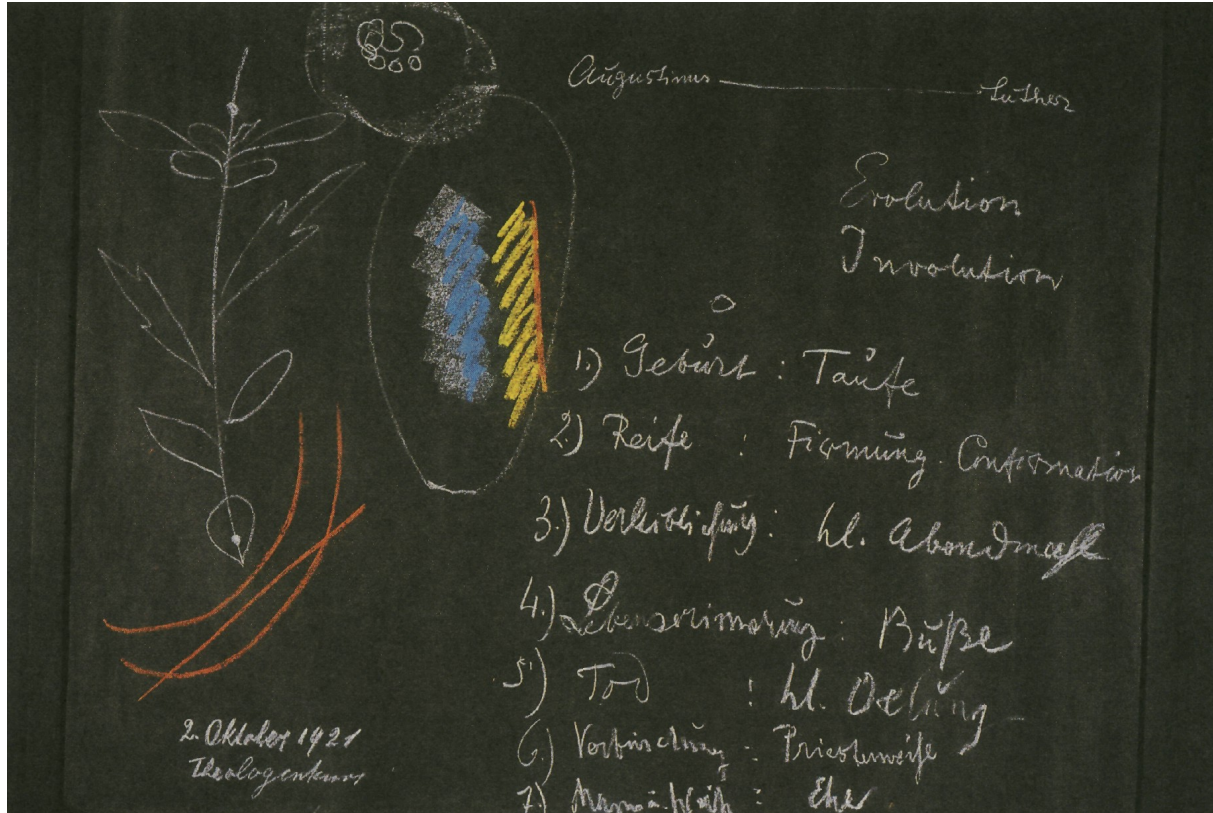 Augustinus — Luther
Evolution
Involution
1.) Geburt : Taufe
2.) Reife : Firmung. Confirmation
3.) Verleiblichung : hl. Abendmahl
4.) Lebenserinnerung : Buße
5.) Tod : hl. Oelung
6.) : Priesterweihe
7.) Mann u. Weib : Ehe
2. Oktober 1921
Theologenkurs